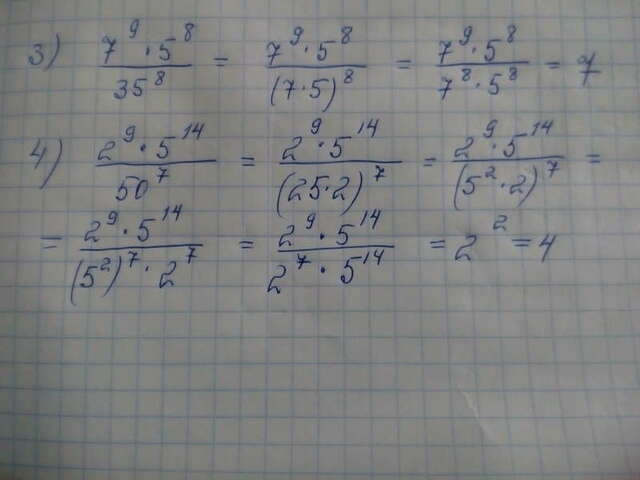 3) \frac{7^9 \cdot 5^8}{35^8} = \frac{7^9 \cdot 5^8}{(7 \cdot 5)^8} = \frac{7^9 \cdot 5^8}{7^8 \cdot 5^8} = 7
4) \frac{2^9 \cdot 5^{14}}{50^7} = \frac{2^9 \cdot 5^{14}}{(25 \cdot 2)^7} = \frac{2^9 \cdot 5^{14}}{(5^2 \cdot 2)^7} =
= \frac{2^9 \cdot 5^{14}}{(5^2)^7 \cdot 2^7} = \frac{2^9 \cdot 5^{14}}{2^7 \cdot 5^{14}} = 2^2 = 4